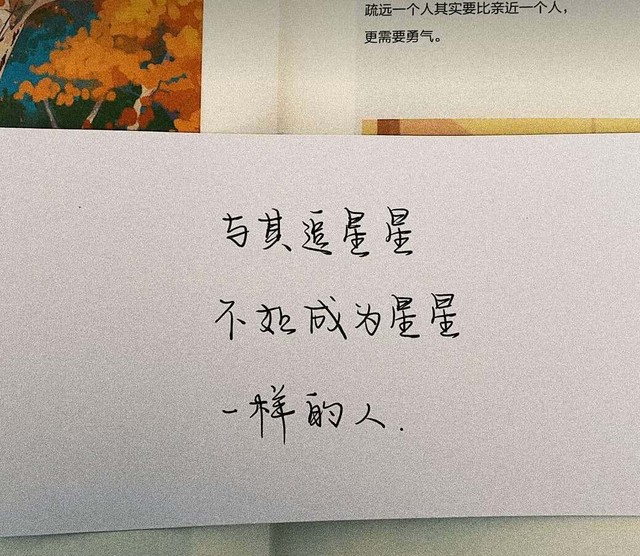 疏远一个人其实要比亲近一个人，
更需要勇气。
与其追星星
不如成为星星
一样的人.